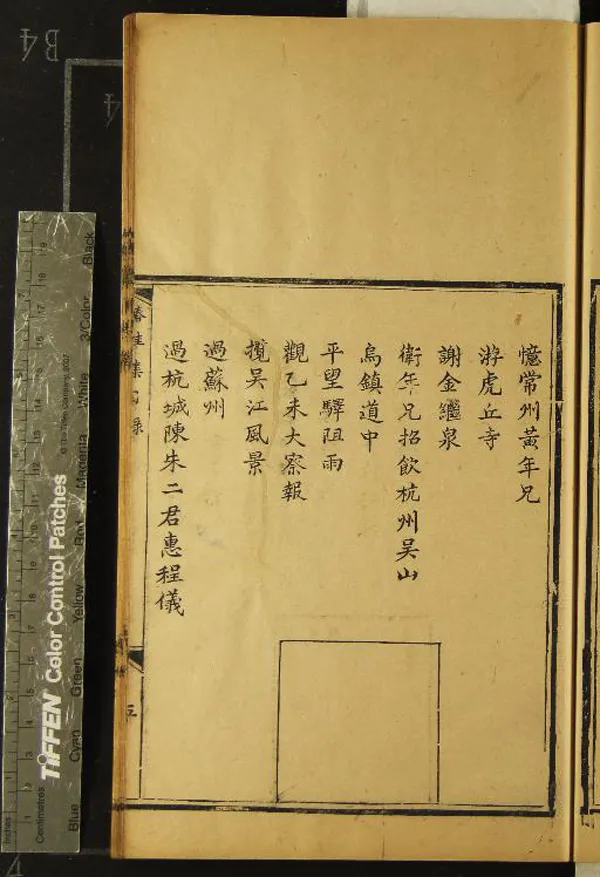 憶常州黃年兄
游虎丘寺
謝金繼泉
衛年兄招飲杭州吳山
烏鎮道中
平望驛阻雨
觀乙未大察報
攬吳江風景
過蘇州
過杭城陳朱二君惠程儀
集目錄
五
B4
4
TIFFEN Color Control Patches
© The Tiffen Company, 2007
Inches
Centimetres
Blue
Cyan
Green
Yellow
Red
Magenta
White
3/Color
Black